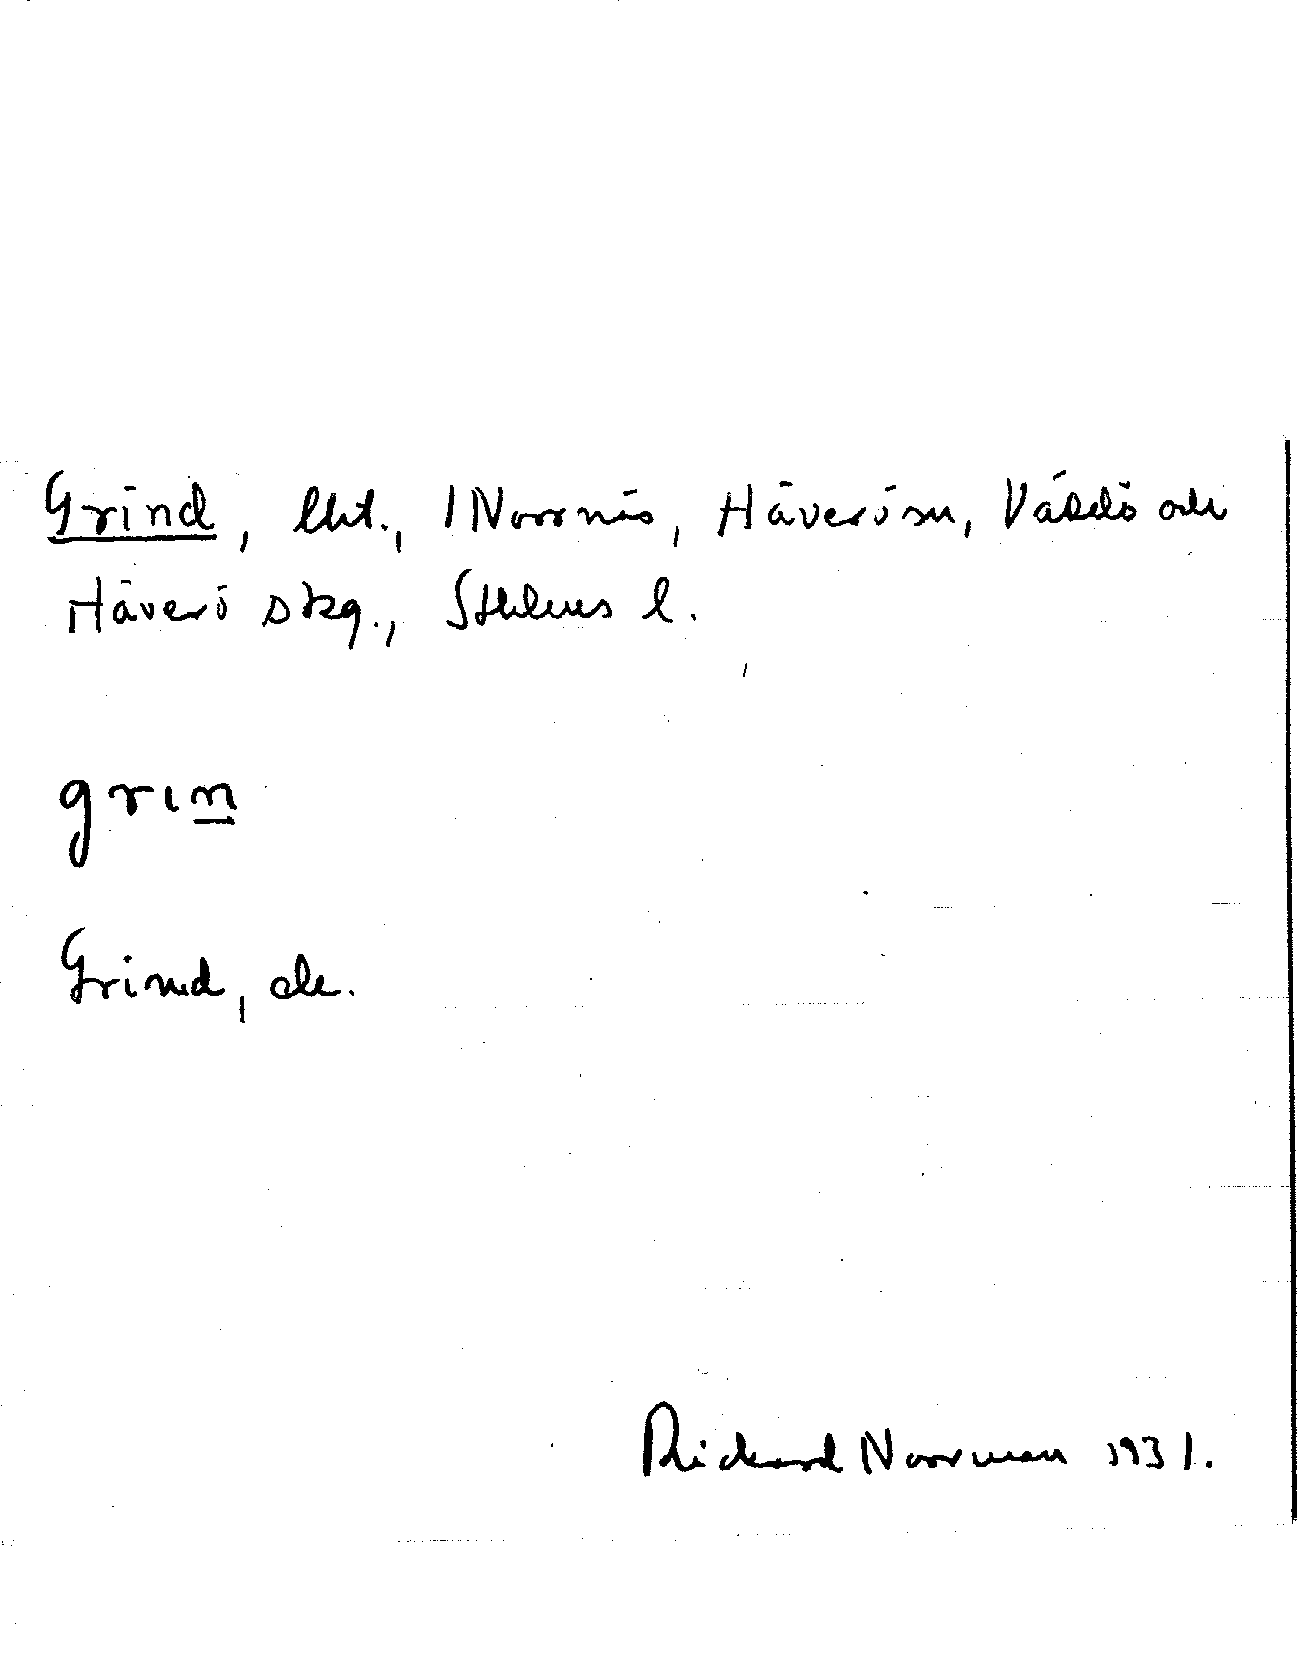 Grind, lht., 1 Norrnäs, Häverö sn, Väddö och
Häverö skg., Sthlms l.
grin
Grind, ele.
Rickard Norrman 1931.